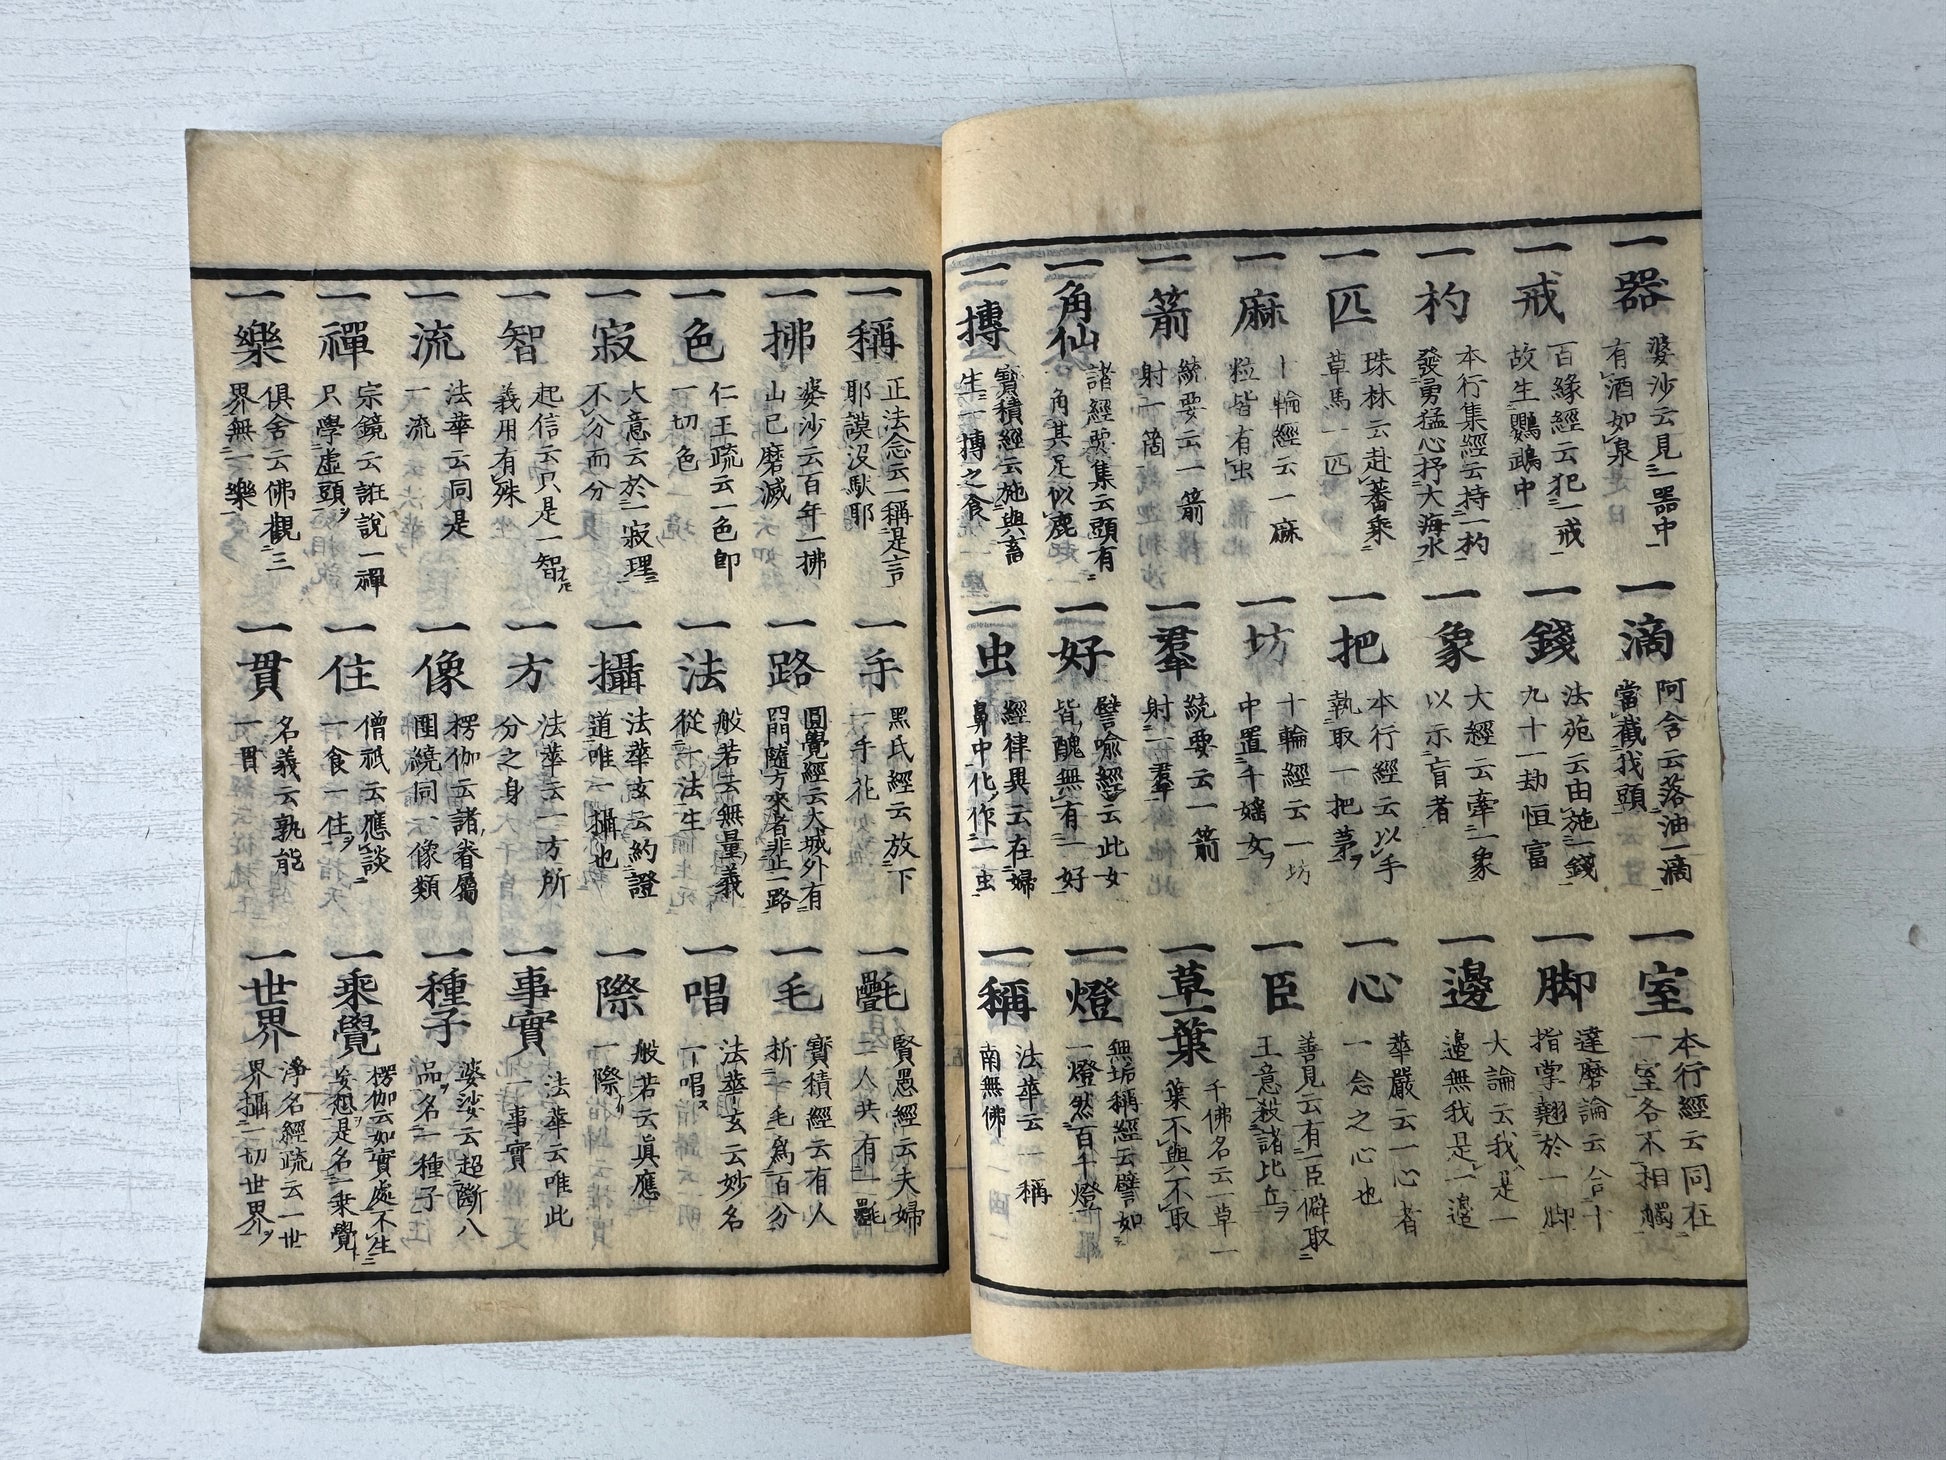 一器
婆沙云見一器中
有酒如泉
一滴
阿含云落油一滴
當截我頭
一室
本行經云同在
一室各不相觸
一戒
百緣經云犯一戒
故生鸚鵡中
一錢
法苑云由施一錢
九十一劫恒富
一脚
達磨論云合十
指掌翹於一脚
一杓
本行集經云持一杓
發勇猛心抒大海水
一象
大經云牽一象
以示盲者
一邊
大論云我是一
邊無我是一邊
一匹
珠林云赴蕃乘
草馬一匹
一把
本行經云以手
執取一把茅
一心
華嚴云一心者
一念之心也
一麻
十輪經云一麻
粒皆有虫
一坊
十輪經云一坊
中置千婬女
一臣
善見云有一臣僻取
王意殺諸比丘
一箭
統要云一箭
射一箇
一羣
統要云一箭
射一羣
一草一葉
千佛名云一草一
葉不與不取
一角仙
諸經要集云頭有
一角其足似鹿
一好
譬喻經云此女
皆醜無有一好
一燈
無垢稱經云譬如
一燈然百千燈
一摶
寶積經云施與畜
生一摶之食
一虫
經律異云在婦
鼻中化作一虫
一稱
法華云一稱
南無佛
一稱
正法念云一稱是言
耶謨沒馱耶
一手
黑氏經云放下
一手花
一氎
賢愚經云夫婦
二人共有一氎
一拂
婆沙云百年一拂
山已磨滅
一路
圓覺經云大城外有
四門隨方來者非止一路
一毛
寶積經云有人
折一毛爲百分
一色
仁王疏云一色卽
一切色
一法
般若云無量義
從一法生
一唱
法華玄云妙名
一唱
一寂
大意云於一寂理
不分而分
一攝
法華玄云約證
道唯一攝也
一際
般若云眞應
一際
一智
起信云只是一智
義用有殊
一方
法華云一方所
分之身
一事實
法華云唯此
一事實
一流
法華云同是
一流
一像
楞伽云諸眷屬
圍繞同一像類
一種子
婆娑云超斷八
品名一種子
一禪
宗鏡云誑說一禪
只學虛頭
一住
僧祇云應談
一食一住
一乘覺
楞伽云如實處不生
妄想是名一乘覺
一樂
俱舍云佛觀三
界無一樂
一貫
名義云孰能
一貫
一世界
淨名經疏云一世
界攝一切世界